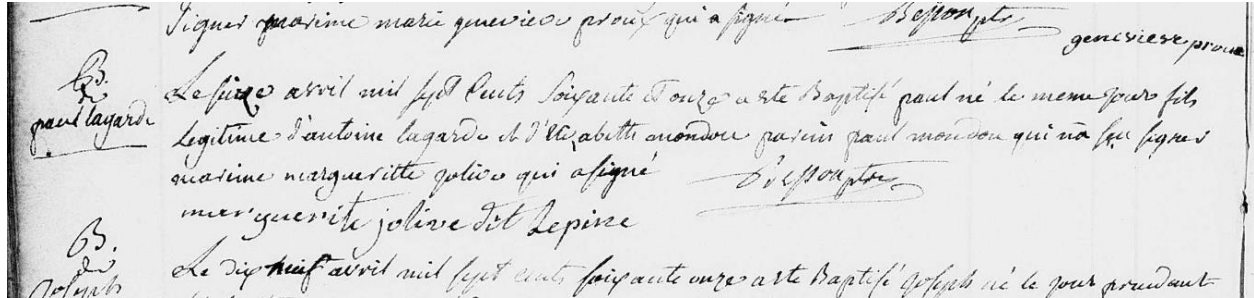 signer marine marie genevieve proux qui a signé Besson ptre
genevieve proux
B.
de
paul lagarde
Le sieze avril mil sept Cents Soixante et onze a ete Baptisé paul né le meme jour fils
legitime d'antoine lagarde et d'elizabette mondou parein paul mondou qui na sçu signer
mareine margueritte jolive qui a signé Besson ptre
marguerite jolive dit Lepine
B.
de
joseph
Le dix neuf avril mil sept cents soixante onze a ete Baptisé joseph né le jour precedant